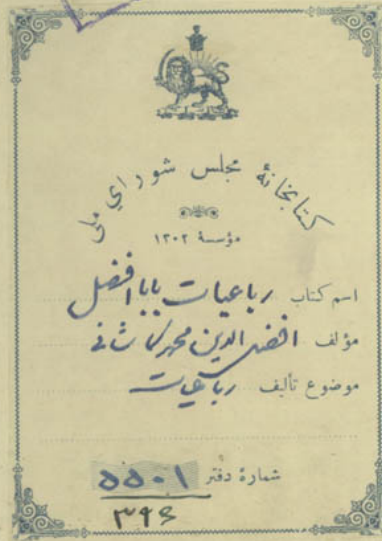 کتابخانهٔ مجلس شورای ملی
مؤسسهٔ ۱۳۰۲
اسم کتاب رباعیات بابا افضل
مؤلف افضل الدین محمد کاشانی
موضوع تألیف رباعیات
شمارهٔ دفتر ۵۵۰۱
۳۹۶